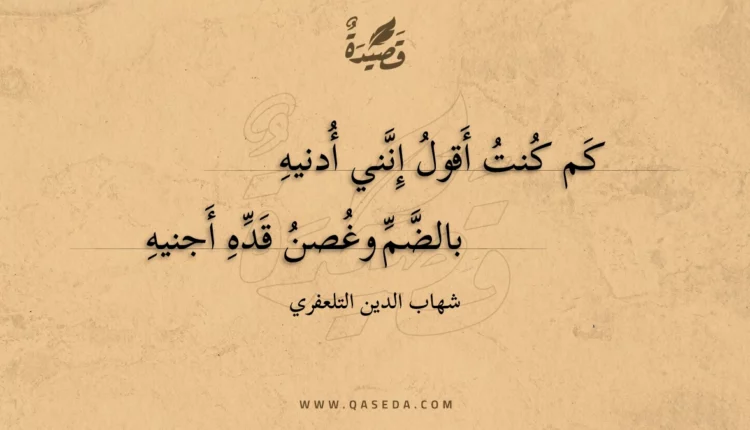 قَصِيدَةٌ
كَم كُنتُ أَقولُ إِنَّني أُدنيهِ
بالضَّمِّ وغُصنُ قَدِّهِ أَجنيهِ
شهاب الدين التلعفري
WWW.QASEDA.COM